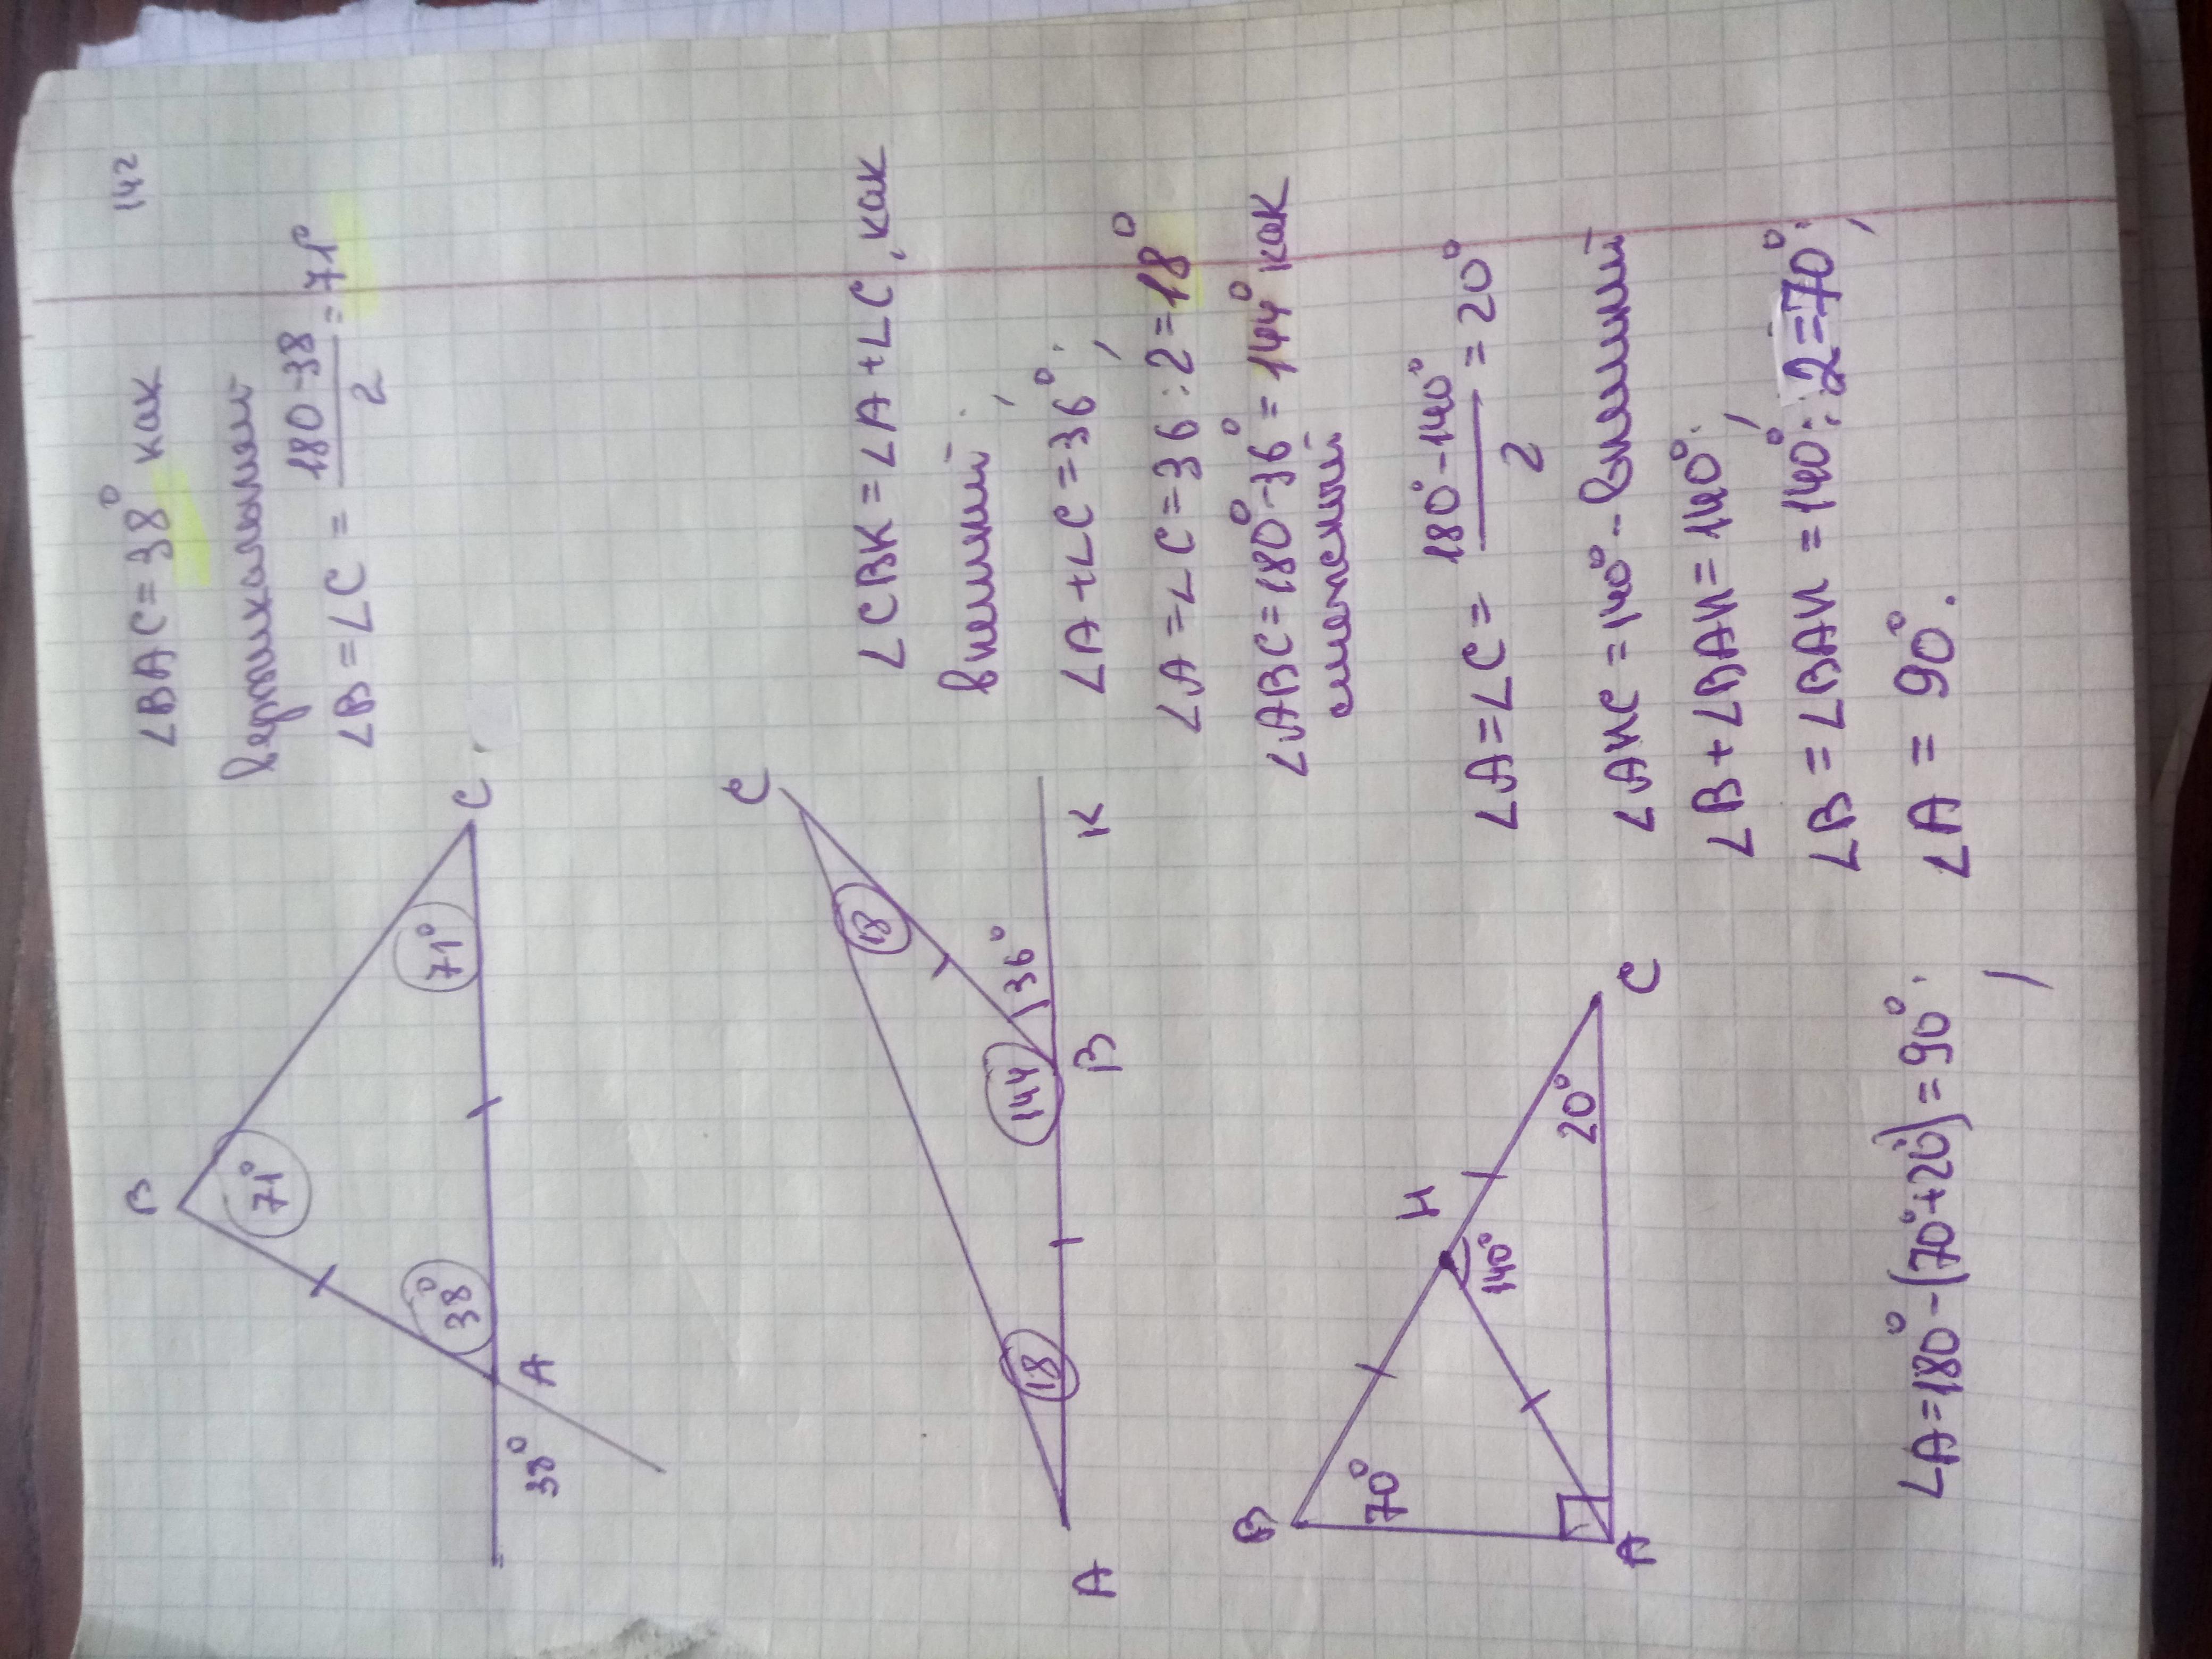 142
∠BAC = 38° как
вертикальный
∠B = ∠C = (180-38)/2 = 71°
B
71°
38°
71°
C
A
38°
∠CBK = ∠A + ∠C, как
внешний;
∠A + ∠C = 36°;
∠A = ∠C = 36 : 2 = 18°
∠ABC = 180° - 36° = 144° как
смежный
C
18
144
36°
18
A
B
K
∠A = ∠C = (180° - 140°)/2 = 20°
∠AHC = 140° - внешний
∠B + ∠BAH = 140°;
∠B = ∠BAH = 140° : 2 = 70°;
∠A = 90°.
B
H
70°
140°
20°
A
C
∠A = 180° - (70° + 20°) = 90°;